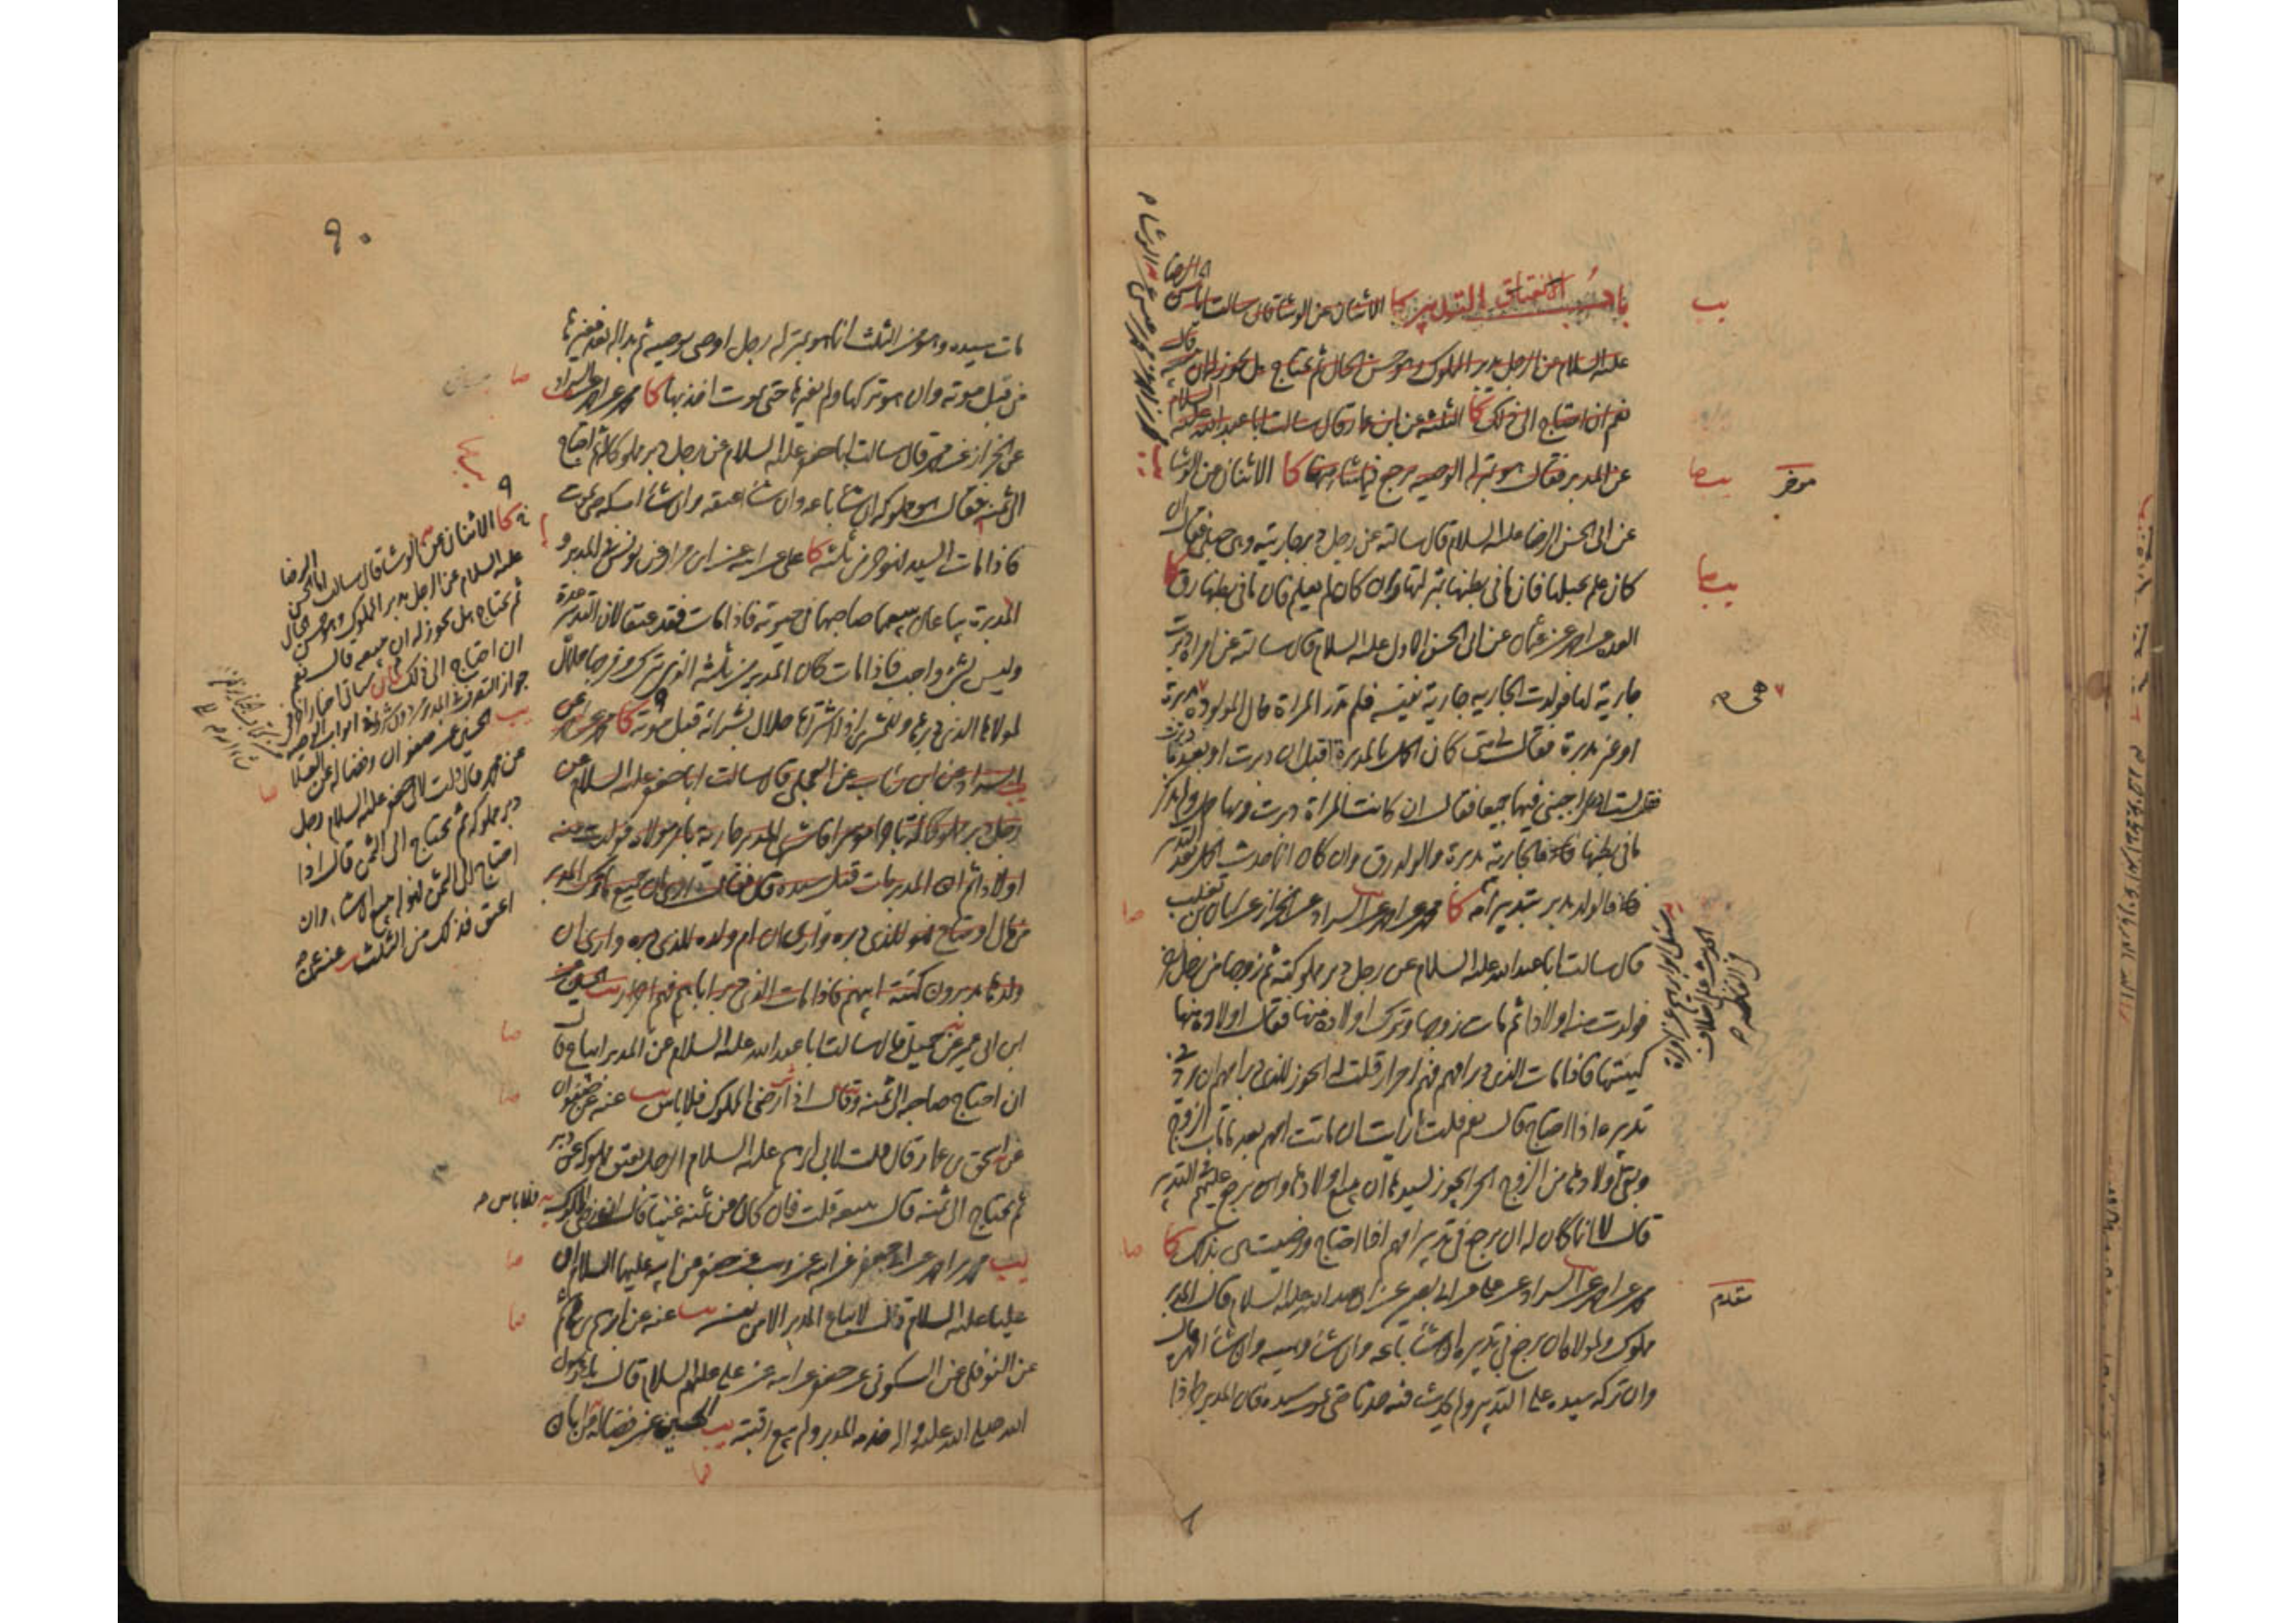 باب الانعتاق بالتدبير كا الاثنان عن الوشا قال سالت ابا الحسن الرضا
عليه السلام عن الرجل يدبر المملوك وهو حسن الحال ثم يحتاج هل يجوز له ان يبيعه قال
نعم ان احتاج الى ذلك كا الثلثة عن ابن عمار قال سالت ابا عبد الله عليه السلام
عن المدبر فقال هو بمنزلة الوصية يرجع فيما شاء منها كا الاثنان عن الوشا
عن ابى الحسن الرضا عليه السلام قال سالته عن رجل دبر جاريته وهى حبلى فقال ان
كان علم بحبلها فان ما فى بطنها بمنزلتها وان كان لم يعلم فان ما فى بطنها رق كا
العدة عن احمد عن عثمان عن ابى الحسن الاول عليه السلام قال سالته عن امراة دبرت
جارية لها فولدت الجارية جارية نفيسة فلم تدر المراة حال المولودة هى مدبرة
او غير مدبرة فقال لى متى كان الحمل بالمدبرة اقبل ان دبرت او بعد ما دبرت
فقلت لست ادرى اجبنى فيهما جميعا فقال ان كانت المراة دبرت وبها حبل ولم تذكر
ما فى بطنها فالجارية مدبرة والولد رق وان كان انما حدث الحمل بعد التدبير
فالولد مدبر بتدبير امه كا محمد عن احمد عن السراد عن الخراز عن ابان بن تغلب
قال سالت ابا عبد الله عليه السلام عن رجل دبر مملوكته ثم زوجها من رجل اخر
فولدت منه اولادا ثم مات زوجها وترك اولاده منها فقال اولاده منها
كهيئتها فاذا مات الذى دبر امهم فهم احرار قلت له ايجوز للذى دبر امهم ان يرد فى
تدبيره اذا احتاج قال نعم قلت ارايت ان ماتت امهم بعد ما مات الزوج
وبقى اولادها من الزوج الحر ايجوز لسيدها ان يبيع اولادها وان يرجع عليهم التدبير
قال لا انما كان له ان يرجع فى تدبير امهم اذا احتاج ورضيت هى بذلك كا
محمد عن احمد عن السراد عن عن ابى بصير عن ابى عبد الله عليه السلام قال المدبر
مملوك ولمولاه ان يرجع فى تدبيره ان شاء باعه وان شاء وهبه وان شاء امهره قال
وان تركه سيده على التدبير ولم يحدث فيه حدثا حتى يموت سيده فان المدبر حر اذا
يب
موخر
متقدم
هى م
٩٠
مات سيده وهو من الثلث انما هو بمنزلة رجل اوصى بوصية ثم بدا له بعد فغيرها
من قبل موته وان هو تركها ولم يغيرها حتى يموت اخذ بها كا محمد عن احمد عن السراد
عن الخراز عن محمد قال سالت ابا جعفر عليه السلام عن رجل دبر مملوكا له ثم احتاج
الى ثمنه فقال هو مملوكه ان شاء باعه وان شاء اعتقه وان شاء امسكه حتى يموت
فاذا مات السيد فهو حر من ثلثه كا على عن ابيه عن ابن مرار عن يونس فى المدبر و
المدبرة يباعان يبيعهما صاحبهما فى حيوته فاذا مات فقد عتقا لان التدبير عدة
وليس بشئ واجب فاذا مات كان المدبر من ثلثه الذى يترك وفرجها حلال
لمولاها الذى دبرها وللمشترى اذا اشتراها حلال بشرائه قبل موته كا محمد عن احمد عن
السراد عن ابن رئاب عن العجلى قال سالت ابا جعفر عليه السلام عن
رجل دبر مملوكا له تاجرا موسرا فاشترى المدبر جارية بامر مولاه فولدت منه
اولادا ثم ان المدبر مات قبل سيده قال فقال ارى ان جميع ما ترك المدبر
من مال او متاع فهو للذى دبره وارى ان ام ولده للذى دبره وارى ان
ولدها مدبرون كهيئة ابيهم فاذا مات الذى دبر اباهم فهم احرار يب الحسين عن
ابن ابى عمير عن جميل قال سالت ابا عبد الله عليه السلام عن المدبر ايباع قال
ان احتاج صاحبه الى ثمنه وقال اذا رضى المملوك فلا باس يب عنه عن صفوان
عن اسحق بن عمار قال قلت لابى ابراهيم عليه السلام الرجل يعتق مملوكه عن دبر
ثم يحتاج الى ثمنه قال يبيعه قلت فان كان عن ثمنه غنيا قال اذا رضى المملوك فلا باس
يب محمد بن احمد عن ابى جعفر عن ابيه عن وهب عن جعفر عن ابيه عليهما السلام ان
عليا عليه السلام قال لا يباع المدبر الا من نفسه يب عنه عن ابراهيم بن هاشم
عن النوفلى عن السكونى عن جعفر عن ابيه عن على عليهم السلام قال باع رسول
الله صلى الله عليه واله خدمة المدبر ولم يبع رقبته يب الحسين عن فضالة عن ابان
كا الاثنان عن الوشا قال سالت ابا الحسن الرضا
عليه السلام عن الرجل يدبر المملوك وهو حسن الحال
ثم يحتاج هل يجوز له ان يبيعه قال نعم
ان احتاج الى ذلك
يب الحسين عن صفوان وفضالة عن العلا
عن محمد قال قلت لابى جعفر عليه السلام رجل
دبر مملوكه ثم يحتاج الى الثمن قال اذا
احتاج الى الثمن فهو له يبيع ان شاء وان
اعتق فذلك من الثلث